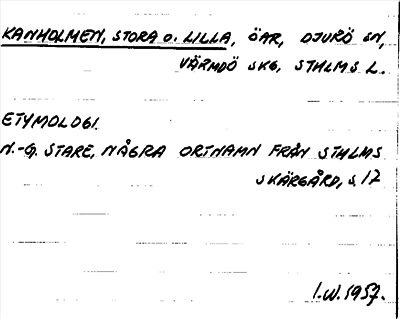 KANHOLMEN, STORA O. LILLA, ÖAR, DJURÖ SN,
VÄRMDÖ SKG, STHLMS L.
ETYMOLOGI
N.-G. STARE, NÅGRA ORTNAMN FRÅN STHLMS
SKÄRGÅRD, S. 17
I.W. 1957.